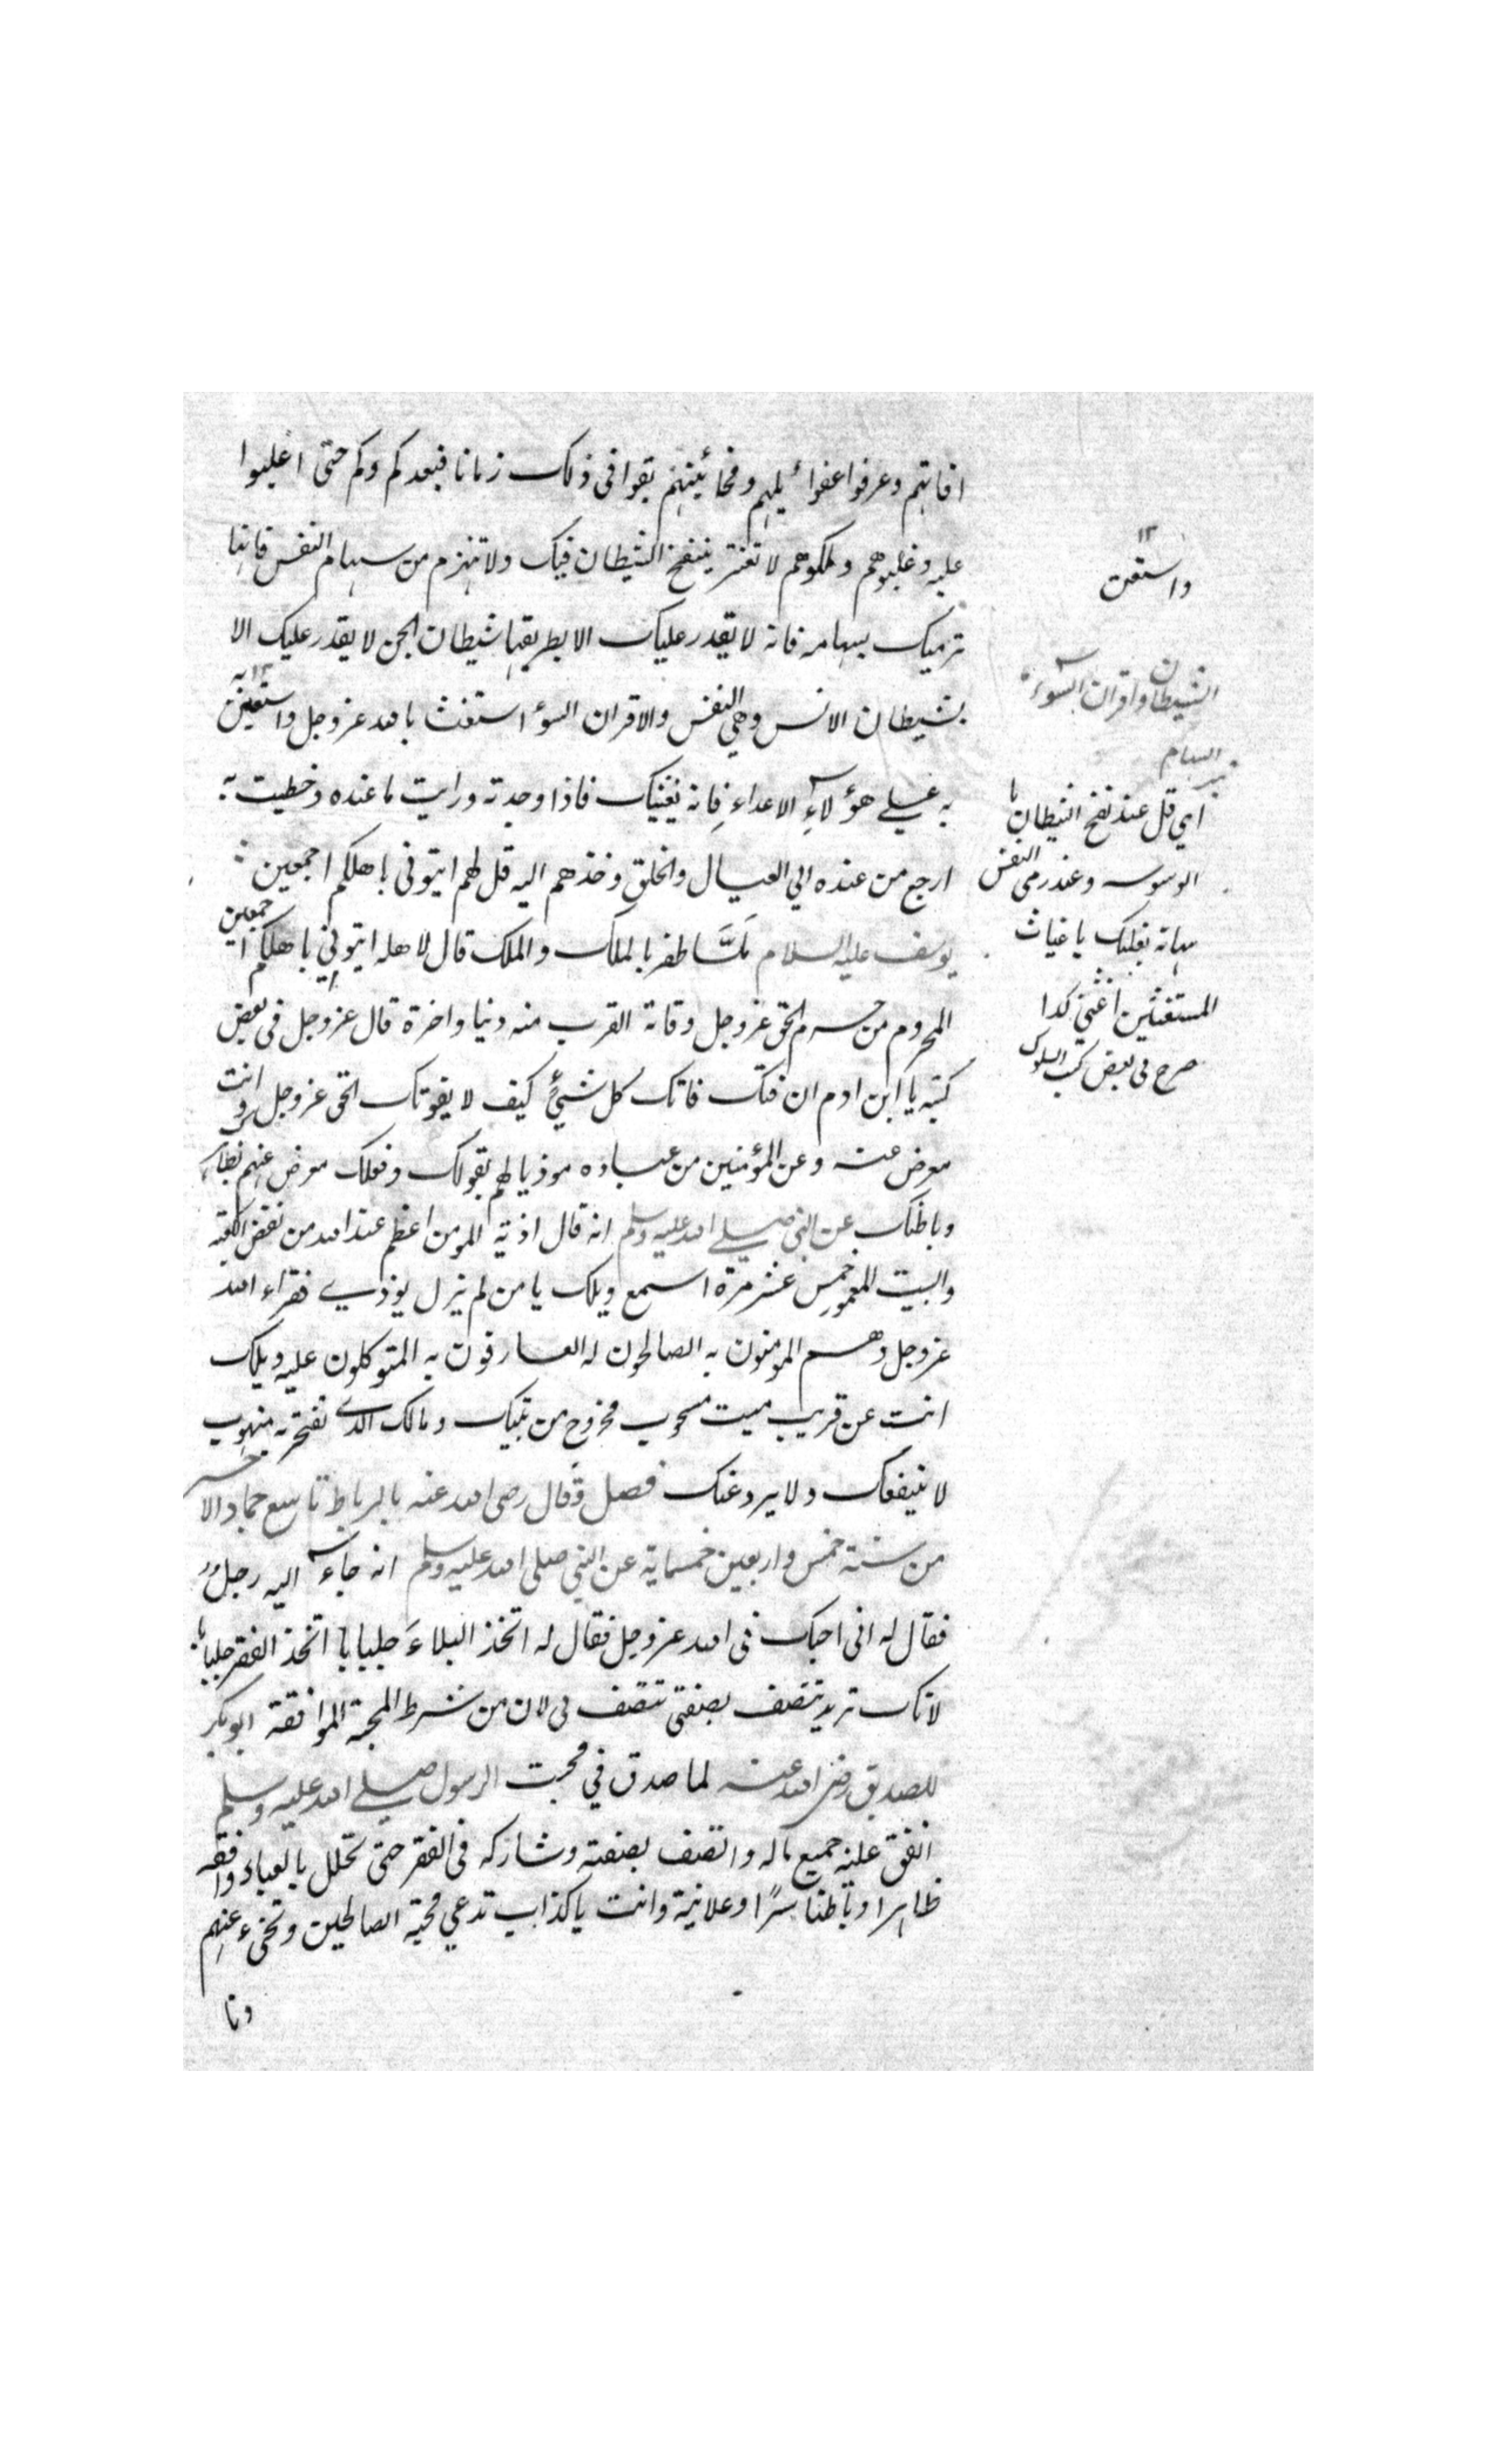 افاتهم وعرفوا غوائلهم ومخائبهم بقوا فى ذلك زمانا فبعد كم وكم حتى اغلبوا
عليه وغلبوهم وملكوهم لا تغتر بنفخ الشيطان فيك ولا تنهزم من سهام النفس فانها
ترميك بسهامه فانه لا يقدر عليك الا بطريقها شيطان الجن لا يقدر عليك الا
بشيطان الانس وهى النفس والاقران السوء استغث بالله عزوجل واستعين
به على هؤلاء الاعداء فانه يغيثك فاذا وجدته ورايت ما عنده وحظيت به
ارجع من عنده الي العيال والخلق وخذهم اليه قل لهم ايتونى باهلكم اجمعين
يوسف عليه السلام لمَّا ظفر بالملك والملك قال لاهله ايتونى باهلكم اجمعين
المحروم من حرم الحق عزوجل وفاته القرب منه دنيا واخرة قال عزوجل فى بعض
كتبه يا ابن ادم ان فتك فاتك كل شيئ كيف لا يفوتك الحق عزوجل وانت
معرض عنه وعن المؤمنين من عباده موذيا لهم بقولك وفعلك معرض عنهم بظاهرك
وباطنك عن النبى صلى الله عليه وسلم انه قال اذية المومن اعظم عند الله من نقض الكعبة
والبيت المعمور خمس عشر مرة اسمع ويلك يا من لم يزل يوذى فقراء الله
عزوجل وهم المومنون به الصالحون له العارفون به المتوكلون عليه ويلك
انت عن قريب ميت مسحوب مخروج من بيتك ومالك الذى تفتخر به منهوب
لا ينفعك ولا يرد عنك فصل وقال رضى الله عنه بالرباط تاسع جماد الاخر
من سنة خمس واربعين خمسماية عن النبى صلى الله عليه وسلم انه جاء اليه رجل
فقال له انى احبك فى الله عزوجل فقال له اتخذ البلاءَ جلبابا اتخذ الفقر جلبابا
لانك تريد تتصف بصفتى تتصف بى لان من شرط المحبة الموافقة ابوبكر
الصديق رضى الله عنه لما صدق في محبت الرسول صلى الله عليه وسلم
انفق عليه جميع ماله واتصف بصفته وشاركه فى الفقر حتى تخلل بالعباء وافقه
ظاهرا وباطنا سرًّا وعلانية وانت يا كذاب تدعي محبة الصالحين وتخبء عنهم
دنا
١٢
واستعن
الشيطان واقران السوء
السهام
اى قل عند نفخ الشيطان
الوسوسه وعند رمى النفس
سهامه بقلبك يا غياث
المستغيثين اغثنى كذا
صرح فى بعض كتب السلوك